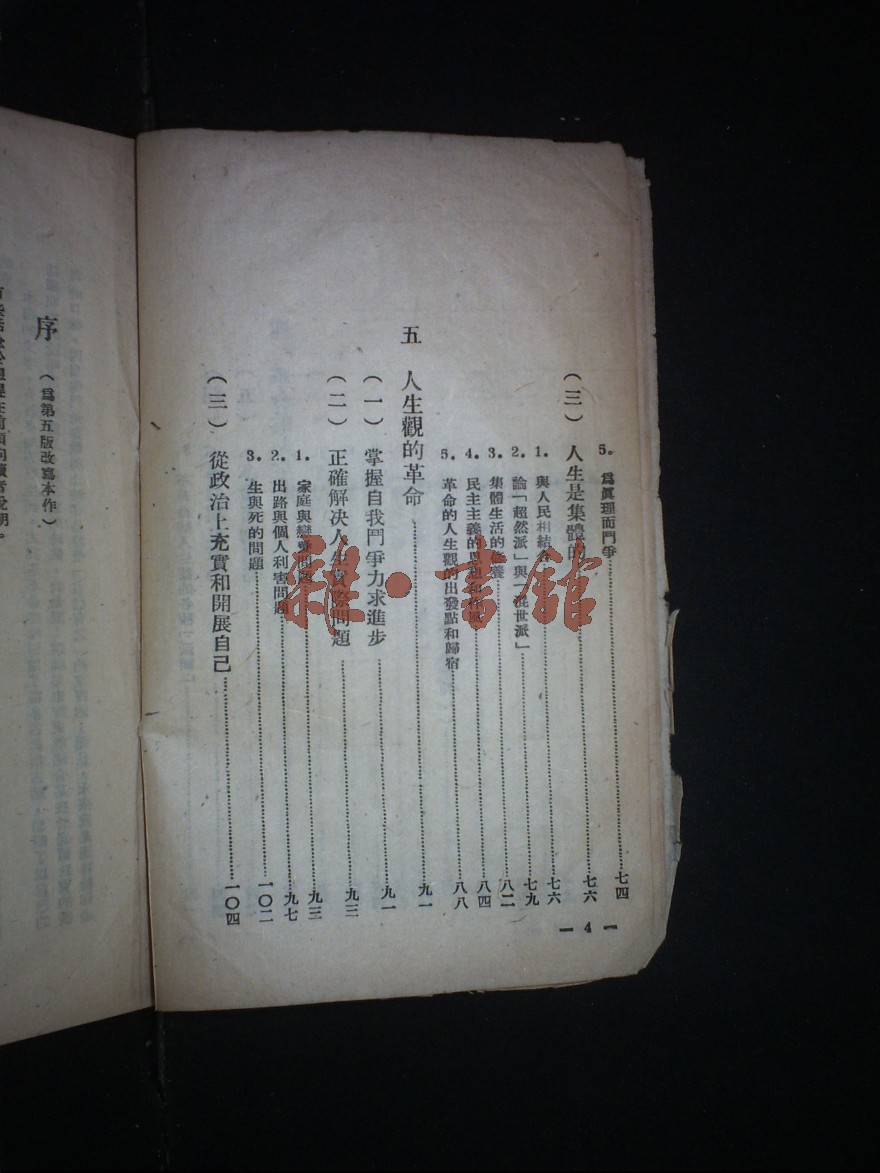 5. 爲眞理而鬥爭……七四
（三）人生是集體的……七六
1. 與人民相結合……七六
2. 論「超然派」與「混世派」……七九
3. 集體生活的修養……八二
4. 民主主義的思想和作風……八四
5. 革命的人生觀的出發點和歸宿……八八
五 人生觀的革命……九一
（一）掌握自我鬥爭力求進步……九一
（二）正確解決人生實際問題……九三
1. 家庭與戀愛問題……九三
2. 出路與個人利害問題……九七
3. 生與死的問題……一〇二
（三）從政治上充實和開展自己……一〇四
— 4 —
序
（爲第五版改寫本作）
雜·書館